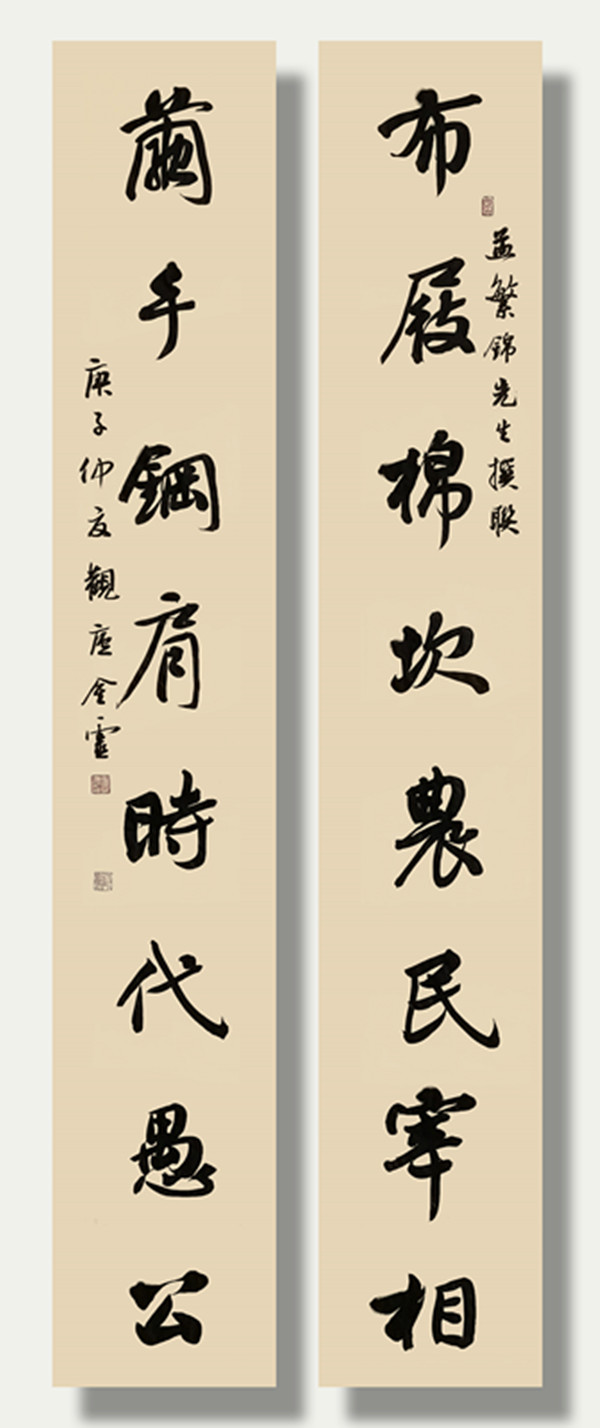 布屐棉坎農民宰相
孟繁錦先生撰聯
繭手鋼肩時代愚公
庚子仲夏觀金